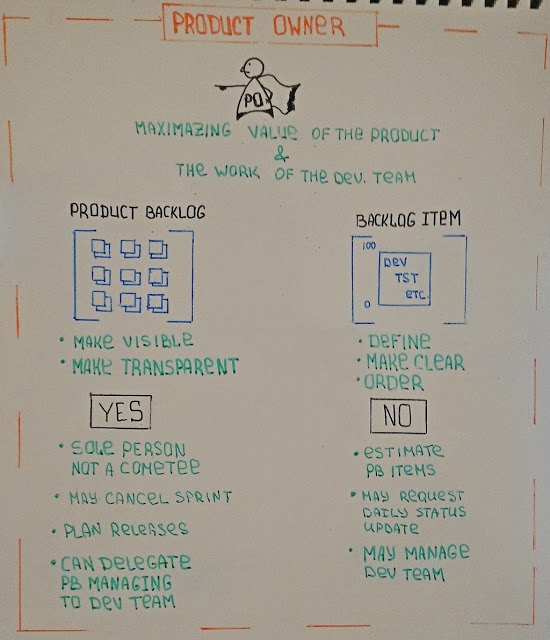 PRODUCT OWNER
PO
MAXIMAZING VALUE OF THE PRODUCT
&
THE WORK OF THE DEV. TEAM
PRODUCT BACKLOG
• MAKE VISIBLE
• MAKE TRANSPARENT
BACKLOG ITEM
100
DEV
TST
ETC.
0
• DEFINE
• MAKE CLEAR
• ORDER
YES
• SOLE PERSON
NOT A COMETEE
• MAY CANCEL SPRINT
• PLAN RELEASES
• CAN DELEGATE
PB MANAGING
TO DEV TEAM
NO
• ESTIMATE
PB ITEMS
• MAY REQUEST
DAILY STATUS
UPDATE
• MAY MANAGE
DEV TEAM